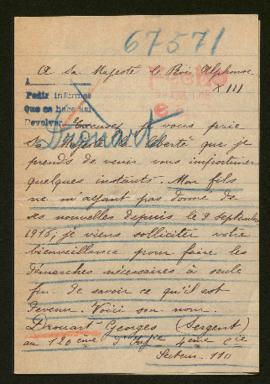 67571
A Sa Majesté le Roi Alphonse
XIII
A
Pedir informes
Que se haga
Devolver
Drouart
Excusez je vous prie
Sa Majesté la liberté que je
prends de venir vous importuner
quelques instants. Mon fils
ne m'ayant pas donné de
ses nouvelles depuis le 9 septembre
1915, je viens solliciter votre
bienveillance pour faire les
démarches nécessaires à seule
fin de savoir ce qu'il est
devenu. Voici son nom.
Drouart Georges (Sergent)
au 120 ème d'Infie 4 ème Cie
Secteur 110